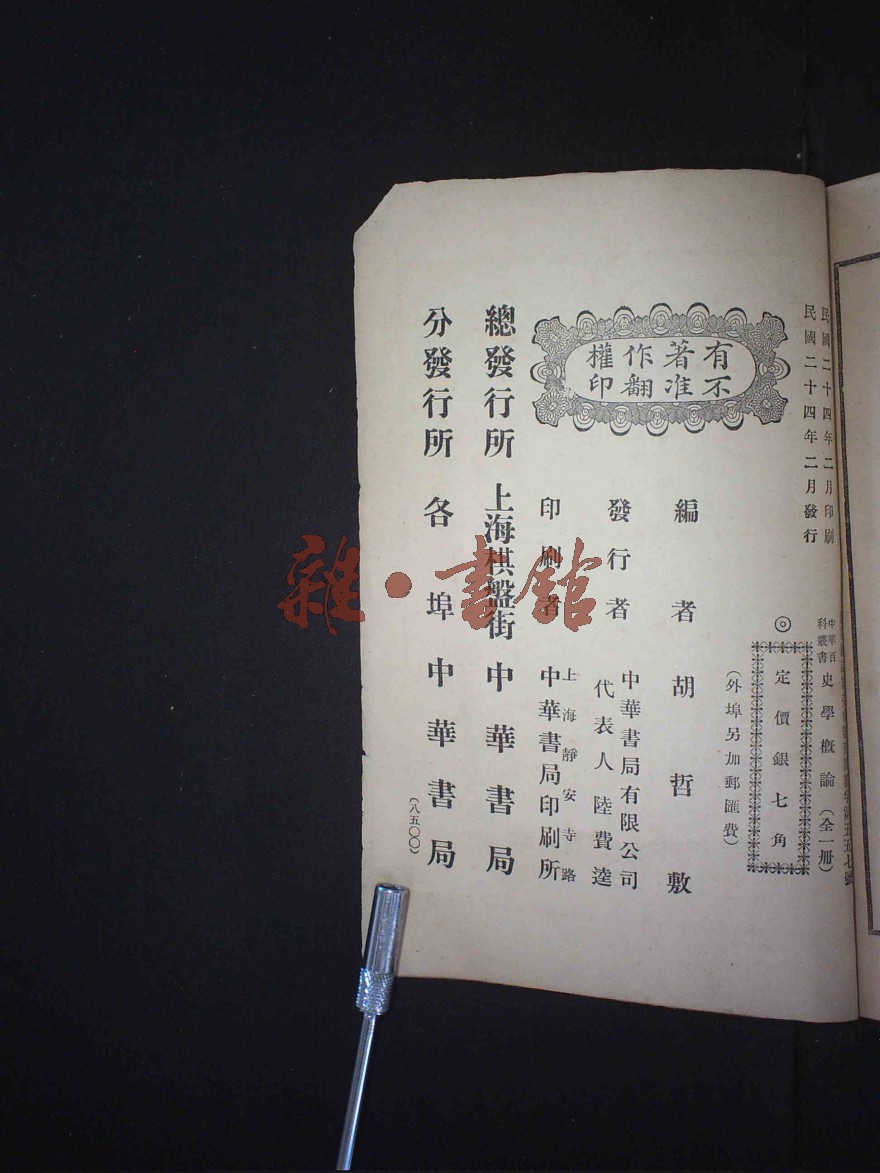 民國二十四年二月印刷
民國二十四年二月發行
中華百科叢書 史學概論（全一册）
◎定價銀七角
（外埠另加郵匯費）
有著作權
不准翻印
編者 胡哲敷
發行者 中華書局有限公司
代表人 陸費逵
印刷者 上海靜安寺路
中華書局印刷所
總發行所 上海棋盤街 中華書局
分發行所 各埠 中華書局
（八五〇〇）
雜·書館